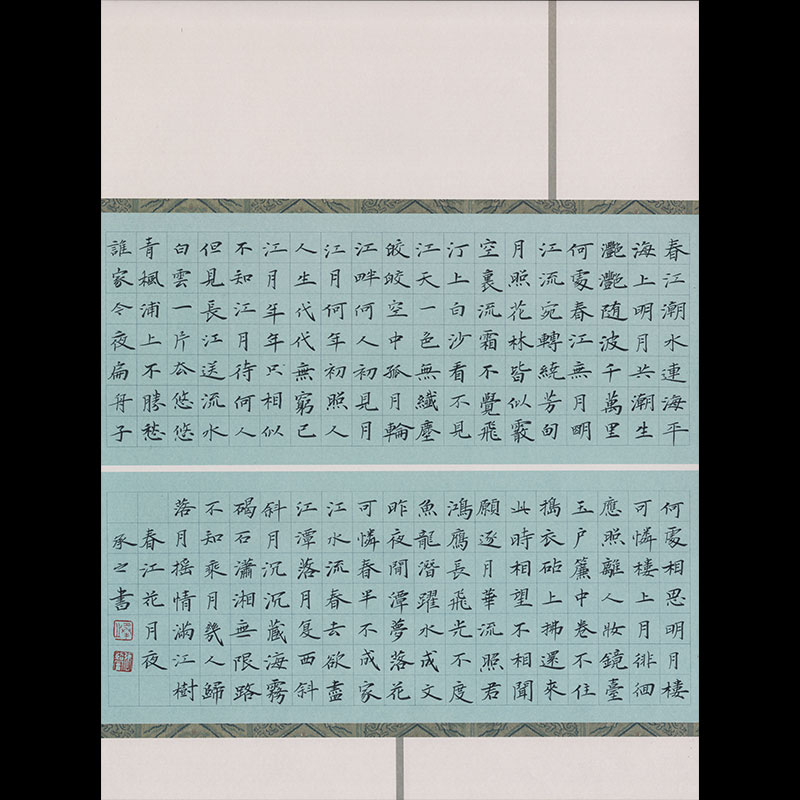 春江潮水連海平
海上明月共潮生
灧灧随波千萬里
何處春江無月明
江流宛轉繞芳甸
月照花林皆似霰
空裏流霜不覺飛
汀上白沙看不見
江天一色無纖塵
皎皎空中孤月輪
江畔何人初見月
江月何年初照人
人生代代無窮已
江月年年只相似
不知江月待何人
但見長江送流水
白雲一片去悠悠
青楓浦上不勝愁
誰家今夜扁舟子
何處相思明月樓
可憐樓上月徘徊
應照離人妝鏡臺
玉戶簾中卷不住
搗衣砧上拂還來
此時相望不相聞
願逐月華流照君
鴻鴈長飛光不度
魚龍潛躍水成文
昨夜閒潭夢落花
可憐春半不成家
江水流春去欲盡
江潭落月复西斜
斜月沉沉藏海霧
碣石瀟湘無限路
不知乘月幾人歸
落月摇情滿江樹
春江花月夜
承之書